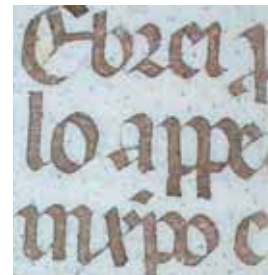 Ebrei a
lo appe
in xpo c